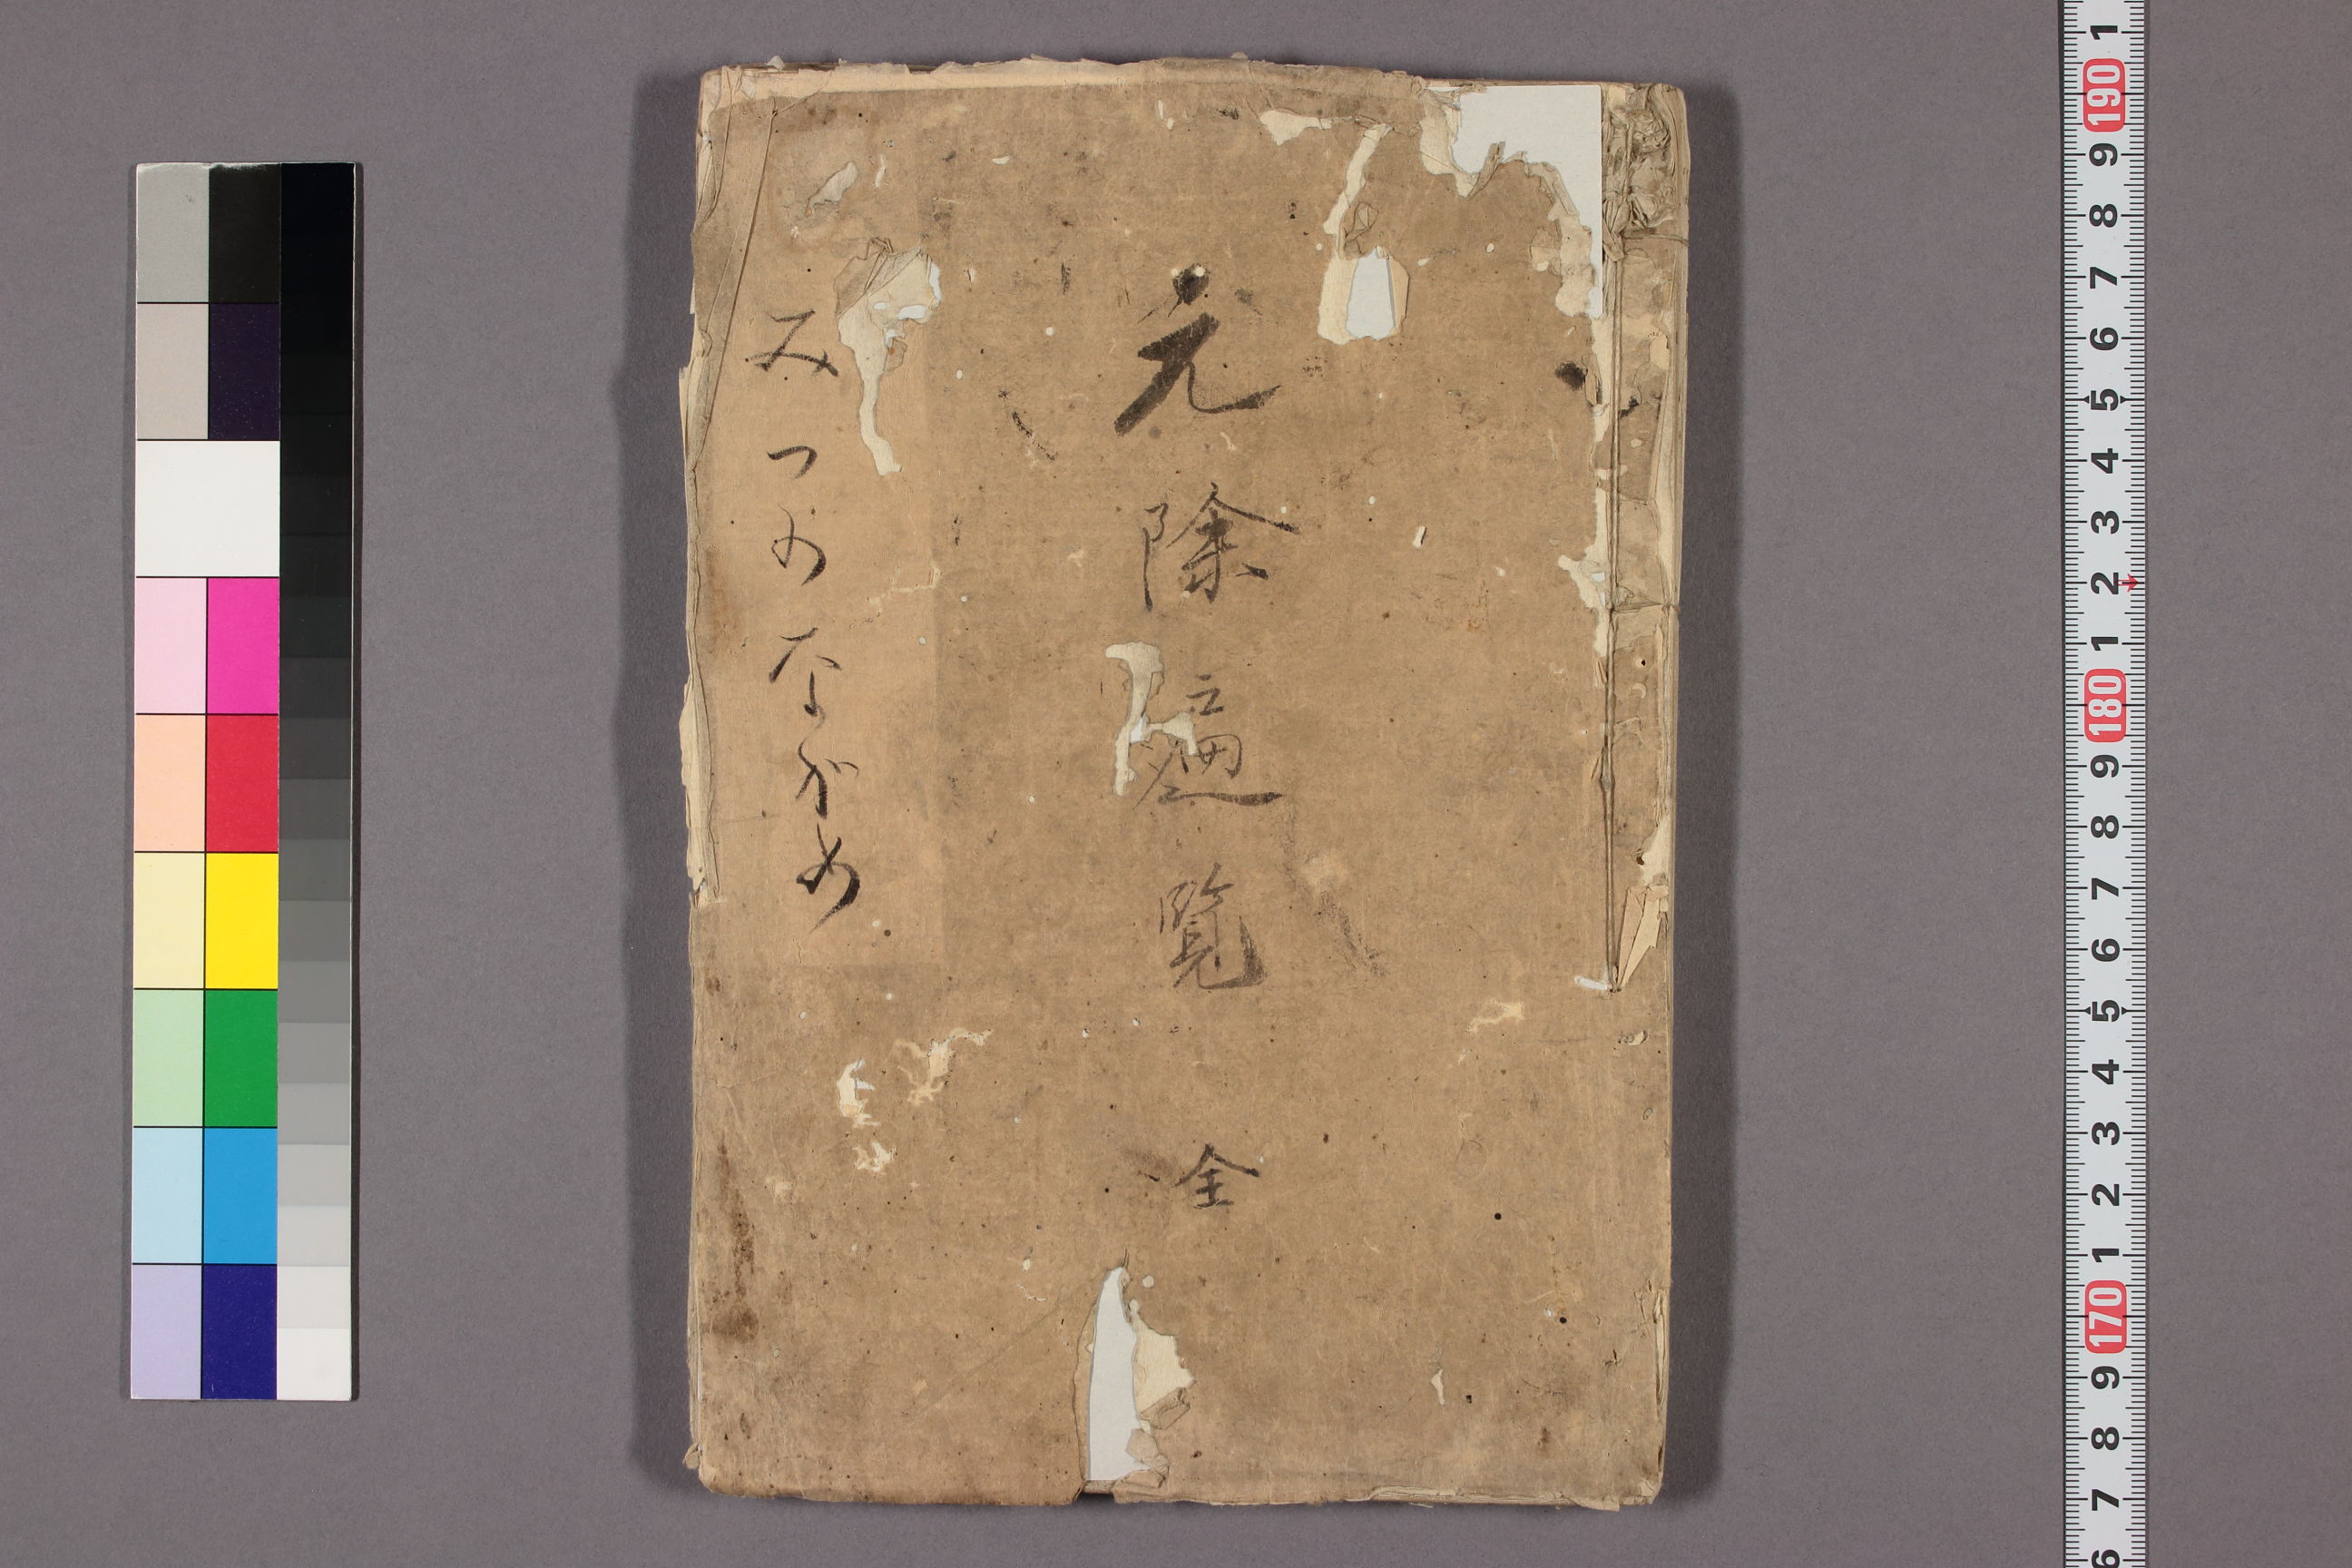 元除遍覧 全
みつのながめ
1
190
9
8
7
6
5
4
3
2
1
180
9
8
7
6
5
4
3
2
1
170
9
8
7
6